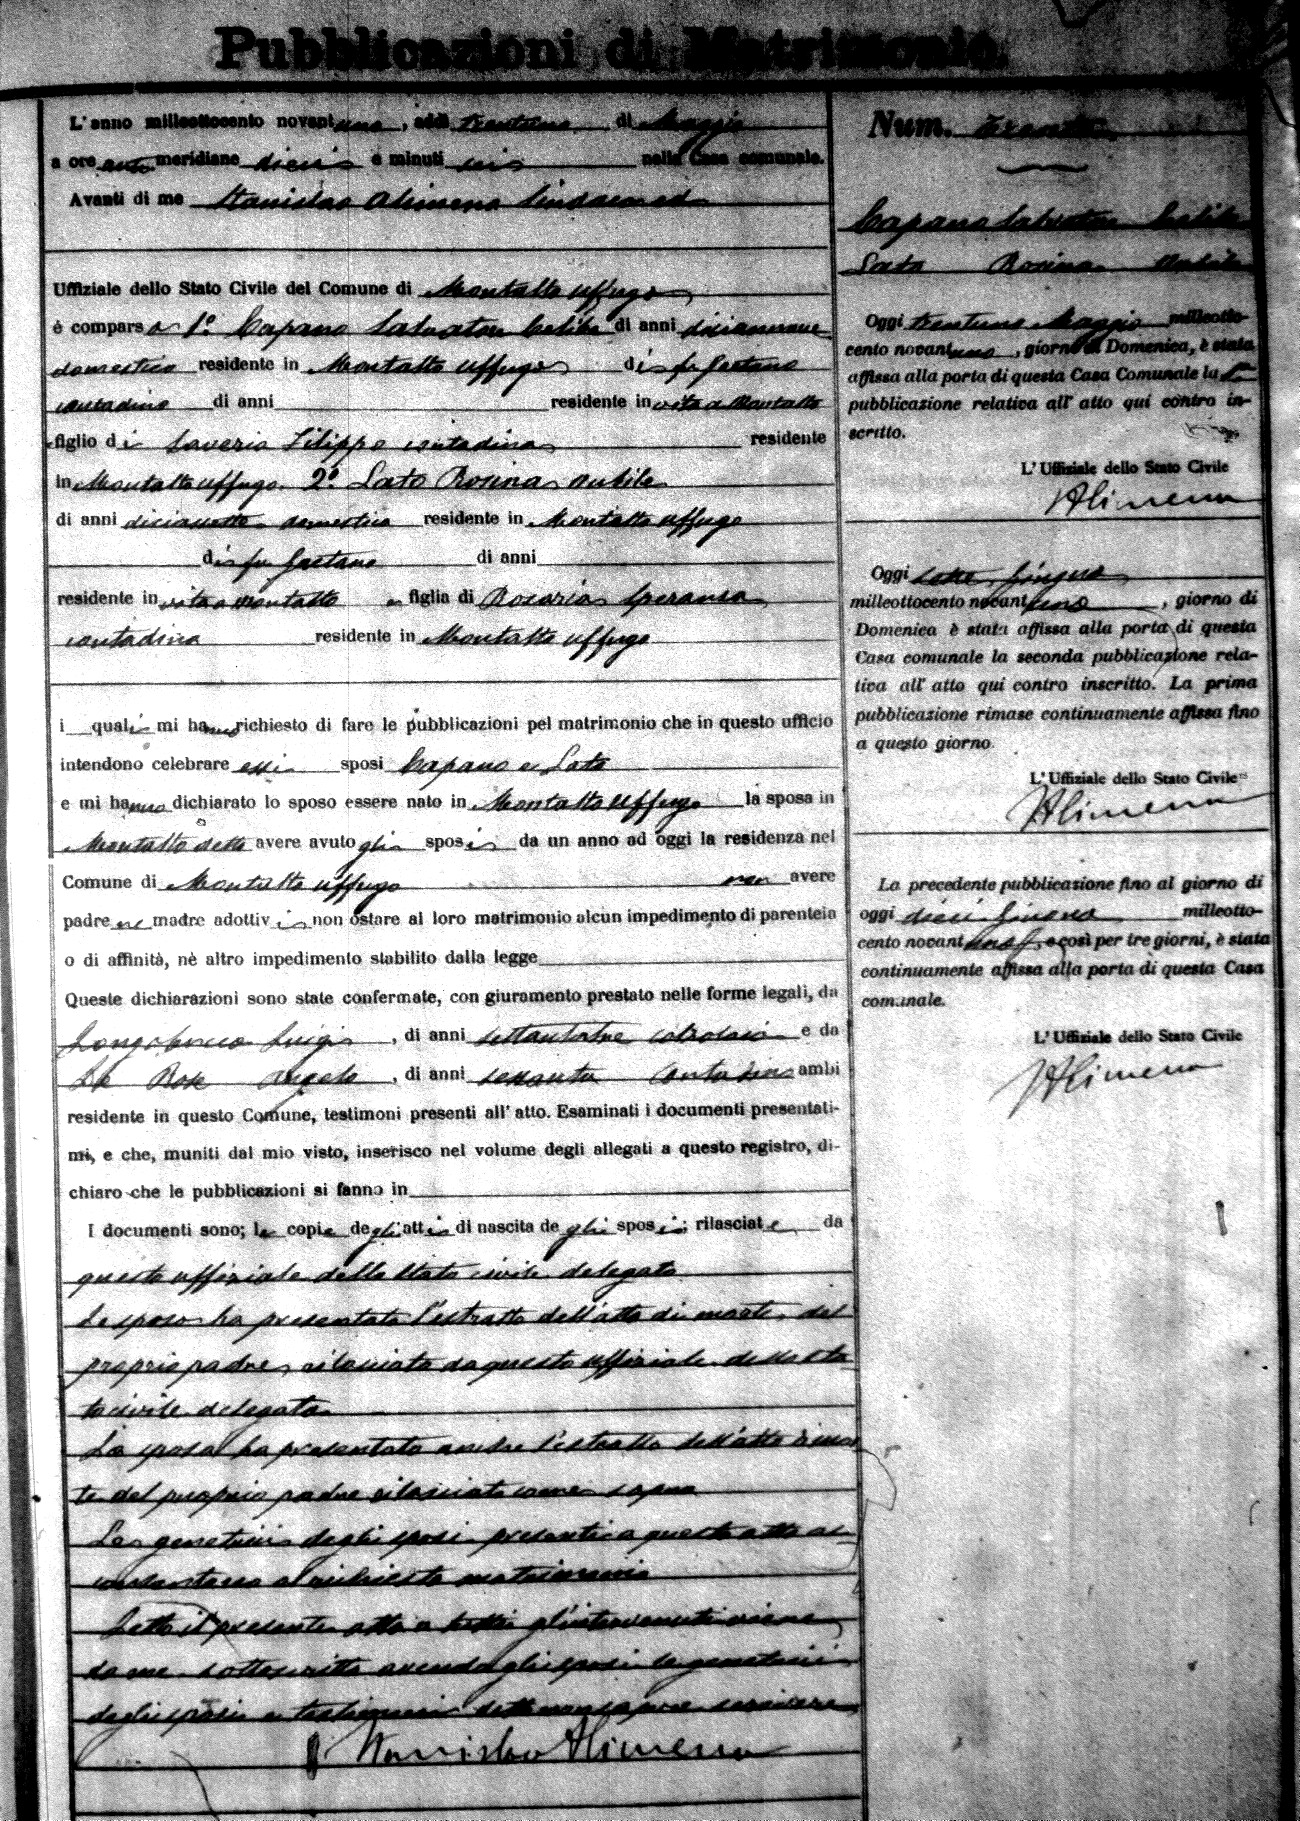 Pubblicazioni di Matrimonio.
L'anno milleottocento novantuno, addì trentuno di Maggio
a ore antimeridiane dieci e minuti seis nella Casa comunale.
Avanti di me Stanislao Alimena Sindaco ed
Uffiziale dello Stato Civile del Comune di Montalto Uffugo
è comparso 1º Capano Salvatore Celibe di anni diciannove
domestico residente in Montalto Uffugo di fu Gaetano
contadino di anni residente in vita a Montalto
figlio di Saveria Filippo contadina residente
in Montalto Uffugo. 2º Lato Rosina nubile
di anni diciannove domestica residente in Montalto Uffugo
di fu Gaetano di anni
residente in vita a Montalto e figlia di Rosaria Speranza
contadina residente in Montalto Uffugo
i quali mi hanno richiesto di fare le pubblicazioni pel matrimonio che in questo ufficio
intendono celebrare essi sposi Capano e Lato
e mi hanno dichiarato lo sposo essere nato in Montalto Uffugo la sposa in
Montalto detto avere avuto gli sposi da un anno ad oggi la residenza nel
Comune di Montalto Uffugo non avere
padre ne madre adottivi non ostare al loro matrimonio alcun impedimento di parentela
o di affinità, nè altro impedimento stabilito dalla legge
Queste dichiarazioni sono state confermate, con giuramento prestato nelle forme legali, da
Longobucco Luigi, di anni settantatre e da
La Rose Angelo, di anni sessanta contadino ambi
residente in questo Comune, testimoni presenti all'atto. Esaminati i documenti presentati-
mi, e che, muniti dal mio visto, inserisco nel volume degli allegati a questo registro, di-
chiaro che le pubblicazioni si fanno in
I documenti sono; le copie degli atti di nascita degli sposi; rilasciate da
questo uffiziale dello Stato civile delegato
Lo sposo ha presentato l'estratto dell'atto di morte del
proprio padre, rilasciato da questo uffiziale dello Sta
to civile delegato
La sposa ha presentato anche l'estratto dell'atto di mor
te del proprio padre rilasciato come sopra
Le genitrici degli sposi presenti a questo atto ac
consentono al richiesto matrimonio
Letto il presente atto a tutti gl'intervenuti viene
da me sottoscritto avendo gli sposi le genitrici
degli sposi e testimoni detto non sapere scrivere
Stanislao Alimena
Num. Trenta
Capano Salvatore Celibe
Lato Rosina Nubile
Oggi trentuno Maggio milleotto-
cento novantuno, giorno di Domenica, è stata
affissa alla porta di questa Casa Comunale la 1ª
pubblicazione relativa all'atto qui contro in-
scritto.
L'Uffiziale dello Stato Civile
SAlimena
Oggi sette Giugno
milleottocento novantuno, giorno di
Domenica è stata affissa alla porta di questa
Casa comunale la seconda pubblicazione rela-
tiva all'atto qui contro inscritto. La prima
pubblicazione rimase continuamente affissa fino
a questo giorno.
L'Uffiziale dello Stato Civile
SAlimena
La precedente pubblicazione fino al giorno di
oggi dieci Giugno milleotto-
cento novantuno, e così per tre giorni, è stata
continuamente affissa alla porta di questa Casa
comunale.
L'Uffiziale dello Stato Civile
SAlimena